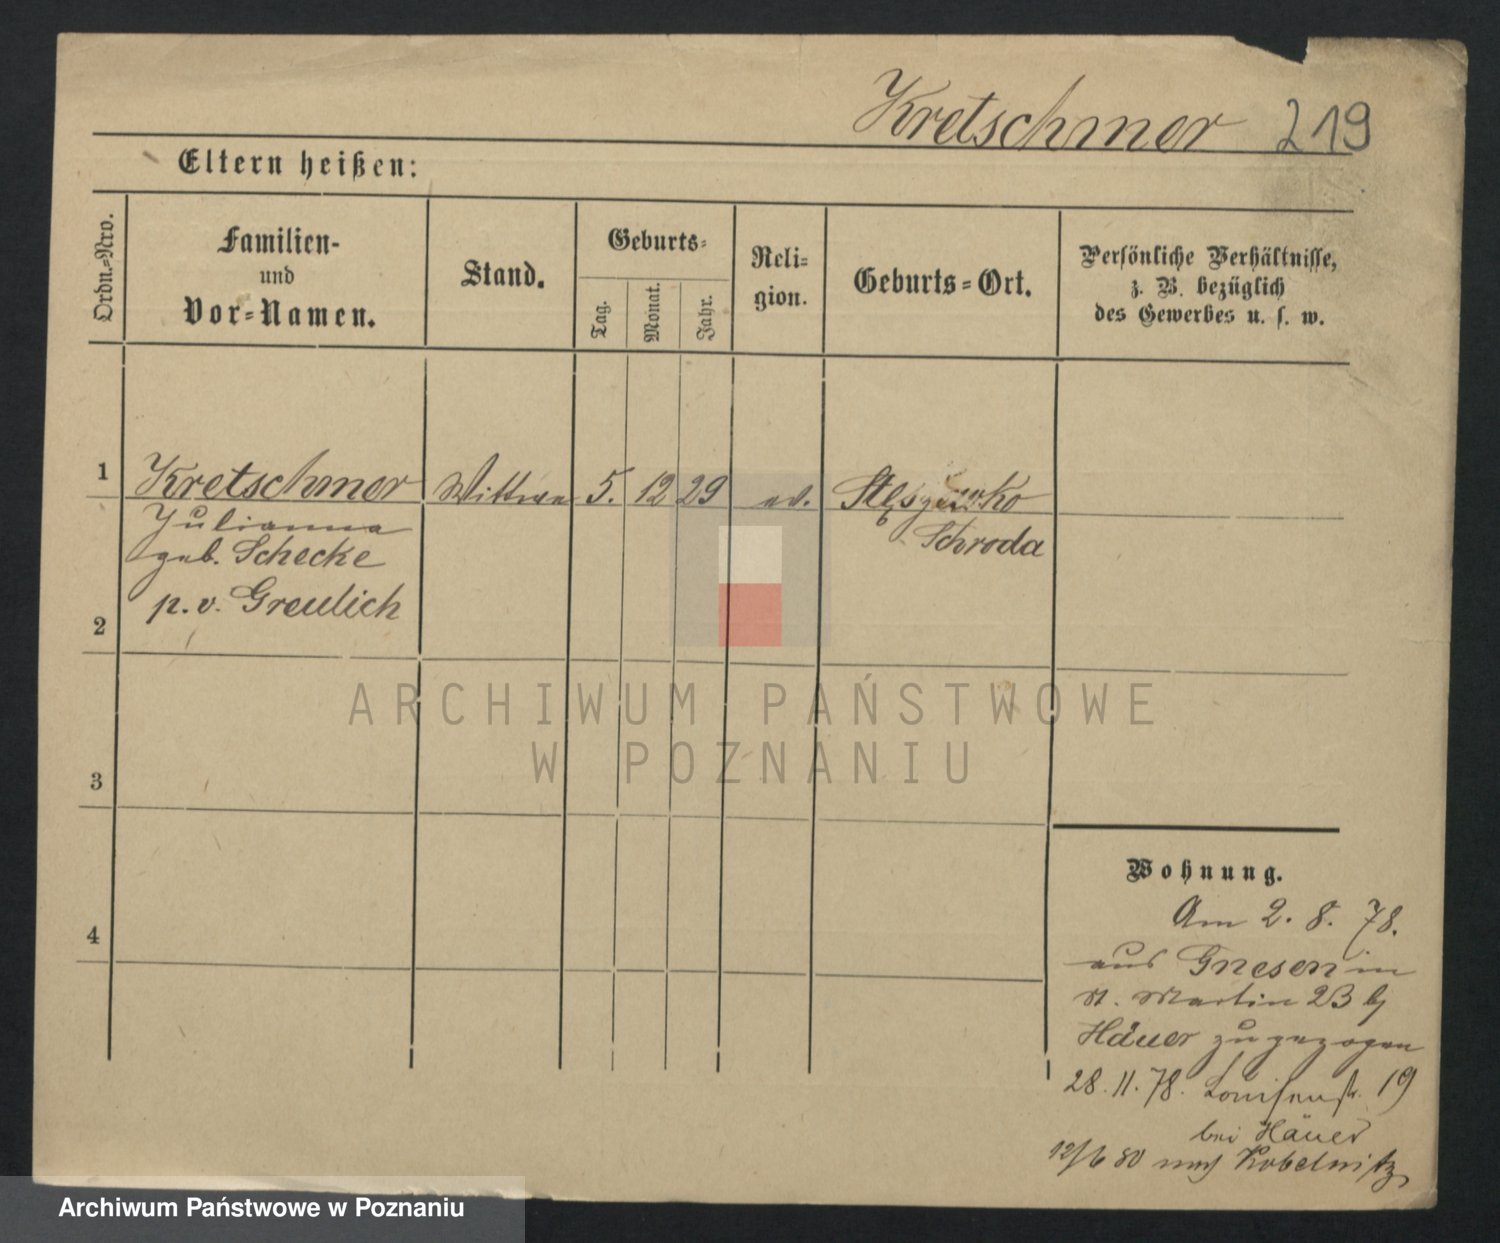 Kretschmer 219
Eltern heißen:
Ordn.=Nro.
Familien-
und
Vor=Namen.
Stand.
Geburts=
Tag.
Monat.
Jahr.
Reli=
gion.
Geburts=Ort.
Persönliche Verhältnisse,
z. B. bezüglich
des Gewerbes u. s. w.
1 Kretschmer Wittwe 5. 12 29 ev.
Julianna Schroda
geb. Schecke
p. v. Greulich
2
3
4
Wohnung.
Am 2. 8. 78.
aus Gnesen in
St. Martin 23 bj
Häuer zugezogen
28. 11. 78. Louisenstr. 19
bei Häuer
12/6 80 nach Kobelnitz
ARCHIWUM PAŃSTWOWE
W POZNANIU
Archiwum Państwowe w Poznaniu